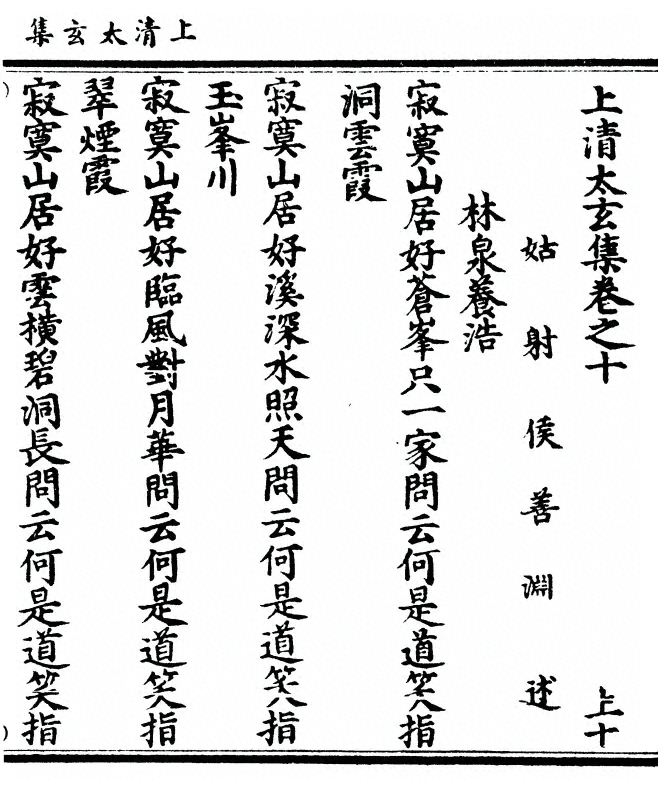 上清太玄集
上清太玄集卷之十 上十
姑射侯善淵述
林泉養浩
寂寞山居好蒼峯只一家問云何是道笑指
洞雲霞
寂寞山居好溪深水照天問云何是道笑指
玉峯川
寂寞山居好臨風對月華問云何是道笑指
翠煙霞
寂寞山居好雲橫碧洞長問云何是道笑指